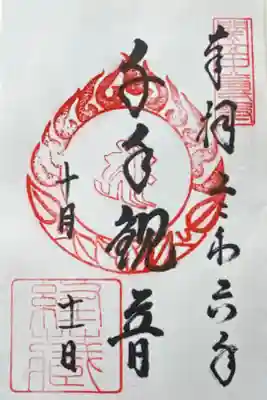 奉拝 令和六年
千手観音
十月
十一日